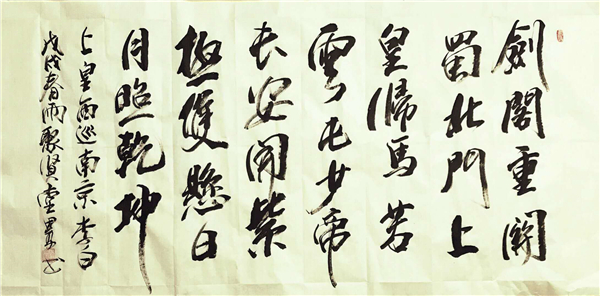 劍閣重關
蜀北門上
皇歸馬若
雲屯少帝
長安開紫
極雙懸日
月照乾坤
上皇西巡南京 李白
戊戌春雨聚賢堂